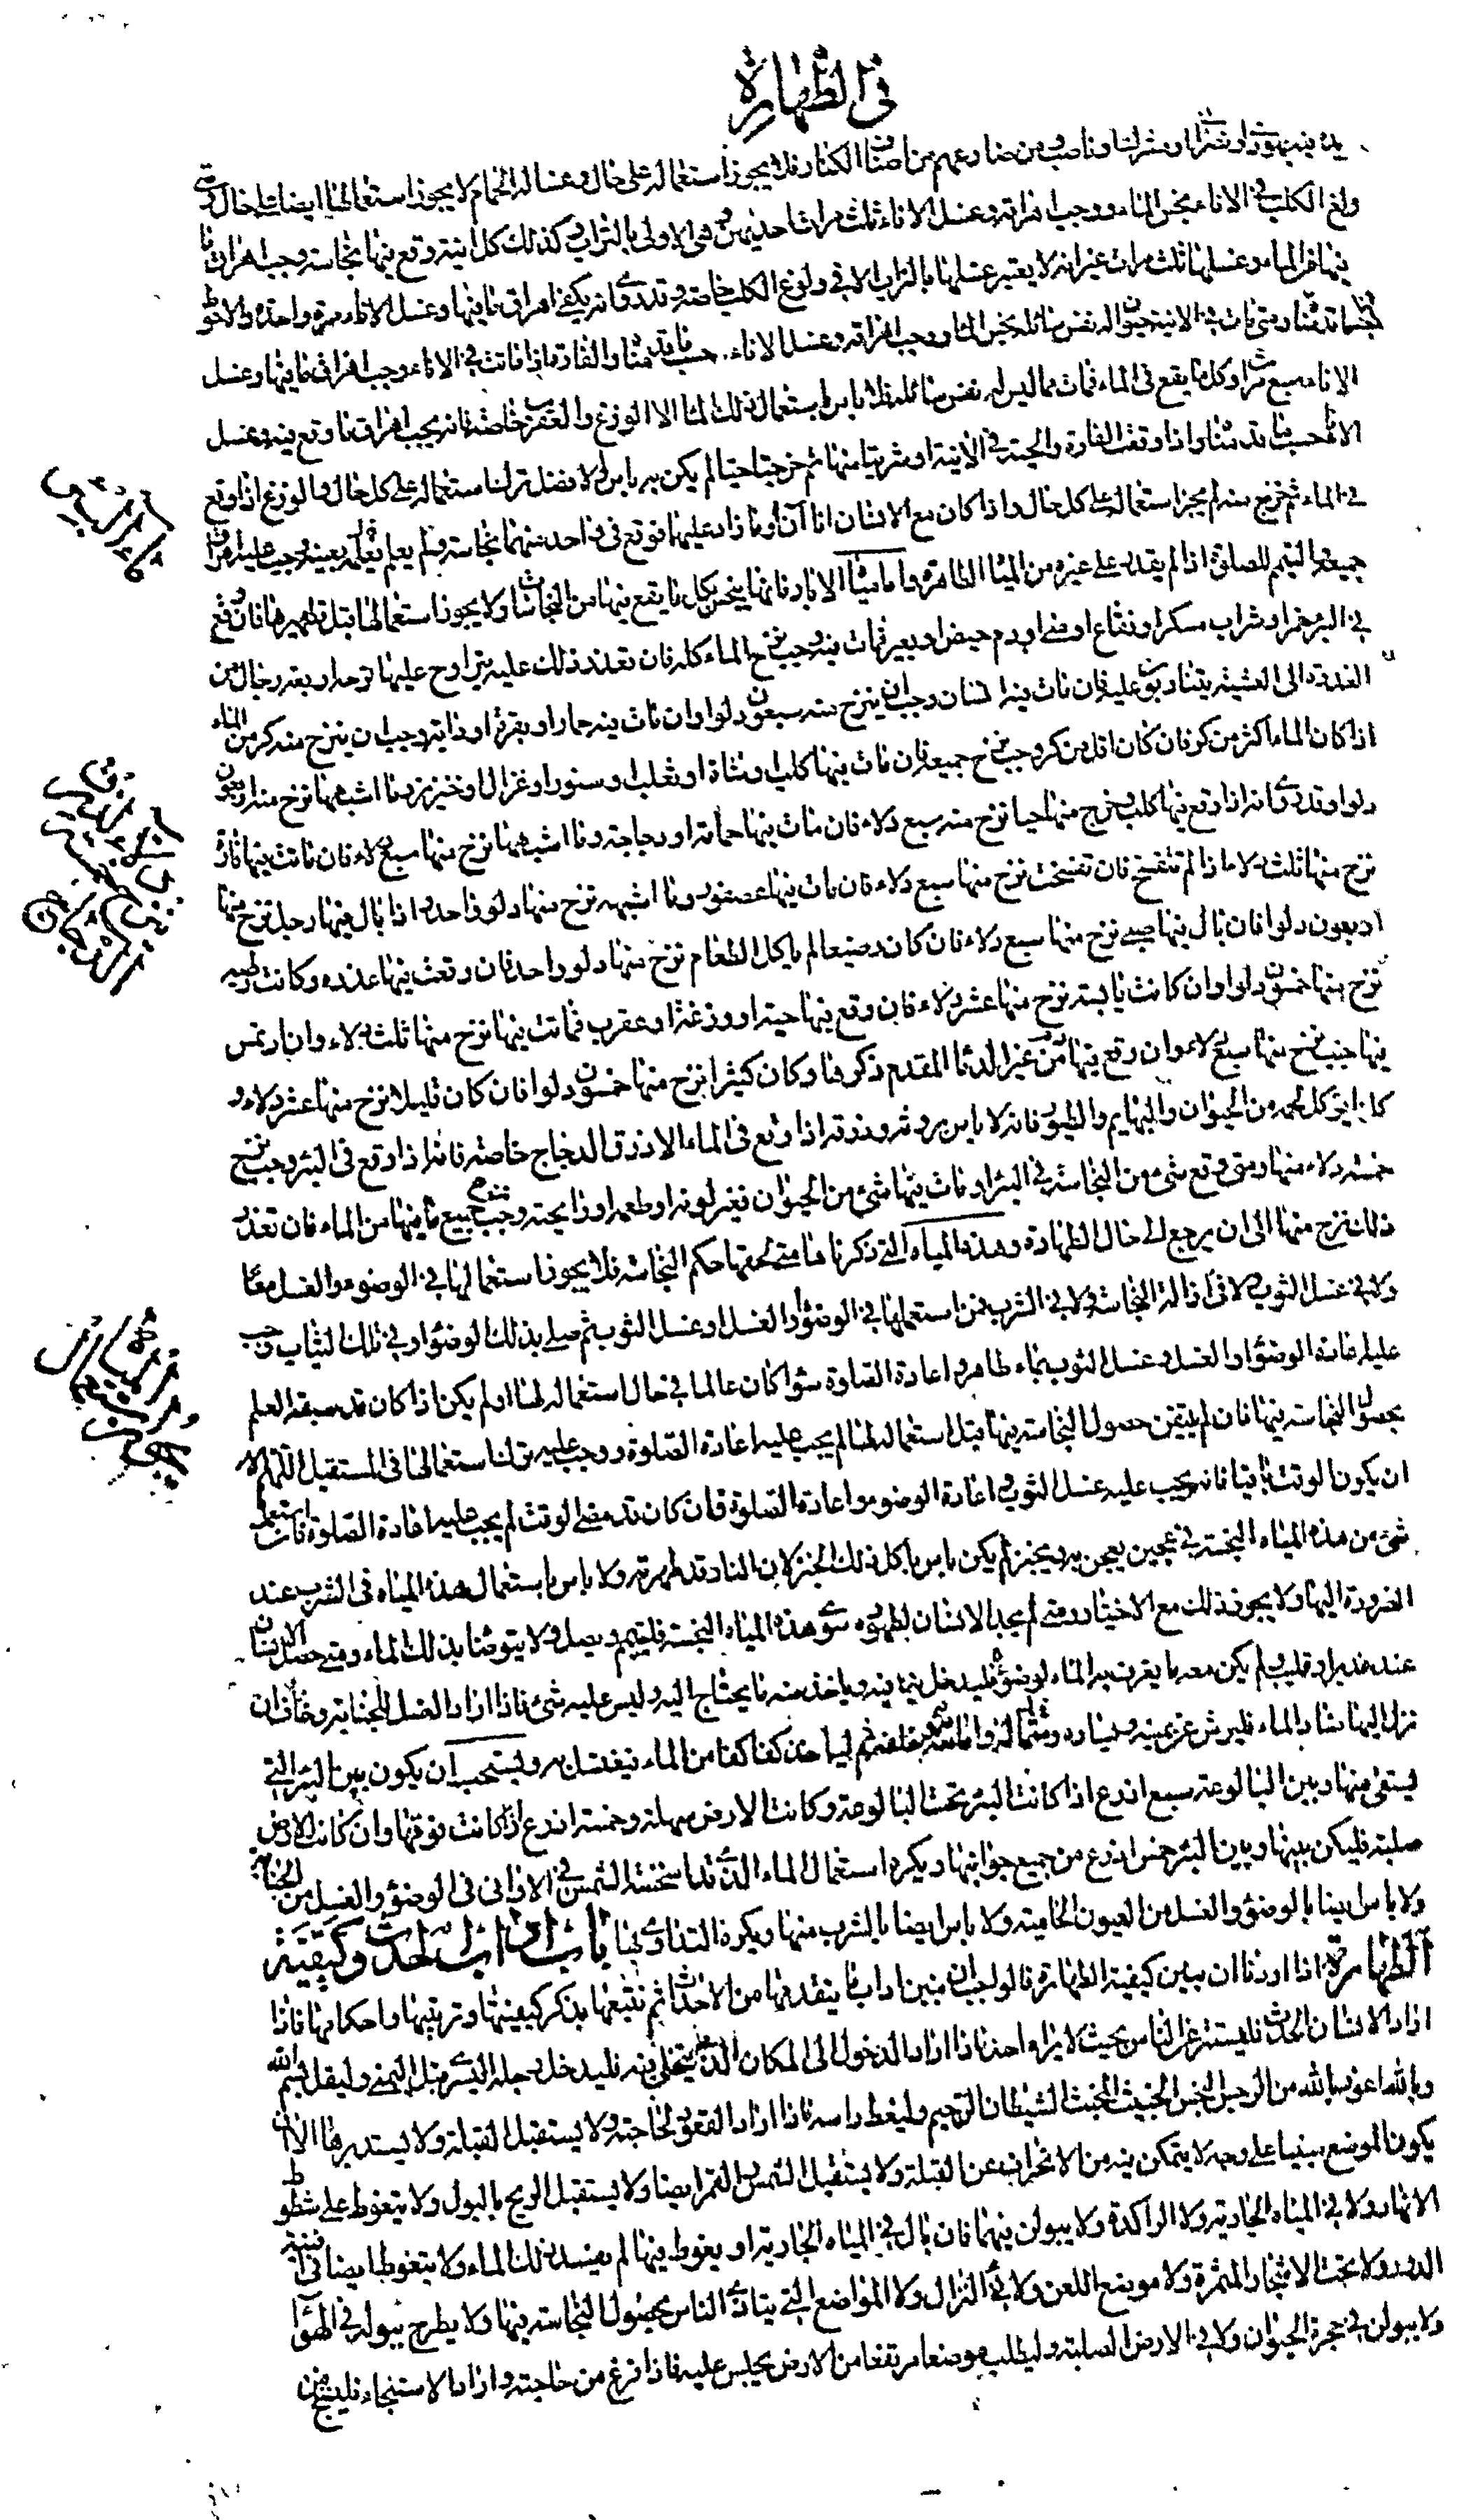 في الطهارة
يده فيه يهودي او نصراني او مشرك او ناصب ومن ضارعهم من اصناف الكفار فلا يجوز استعماله على حال وغسالة الحمام لا يجوز استعمالها ايضا على حال ومتى
ولغ الكلب في الاناء نجس الماء ووجب اهراقه وغسل الاناء ثلث مرات احديهن وهي الاولى بالتراب وكذلك كل انية وقع فيها نجاسة وجب اهراق ما
فيها من الماء وغسلها ثلث مرات غير انه لا يعتبر غسلها بالتراب الا في ولوغ الكلب خاصة وقد روي انه يكفي اهراق ما فيها وغسل الاناء مرة واحدة والاحوط
ما قدمناه ومتى مات في الانية حيوان له نفس سائلة نجس الماء ووجب اهراقه وغسل الاناء حسب ما قدمناه والفارة اذا ماتت في الاناء وجب اهراق ما فيها وغسل
الاناء سبع مرات وكل ما يقع في الماء فمات مما ليس له نفس سائلة فلا باس باستعمال ذلك الماء الا الوزغ والعقرب خاصة فانه يجب اهراق ما وقع فيه وغسل
الاناء حسب ما قدمناه واذا وقعت الفارة والحية في الانية او شربتا منها ثم خرجتا حيتا لم يكن به باس والافضل ترك استعماله على كل حال والوزغ اذا وقع
في الماء ثم خرج منه لم يجز استعماله على كل حال واذا كان مع الانسان اناآن او ما زاد عليهما فوقع في واحد منهما نجاسة ولم يعلمه بعينه وجب عليه اهراق
جميعه والتيمم للصلوة اذا لم يقدر على غيره من المياه الطاهرة واما مياه الابار فانها ينجس بكل ما يقع فيها من النجاسات ولا يجوز استعمالها قبل تطهيرها فان وقع
في البئر خمر او شراب مسكر او فقاع او مني او دم حيض او بعير فمات فيه وجب نزح الماء كله فان تعذر ذلك عليه تراوح عليها اربعة رجال من
الغدوة الى العشية يتناوبون عليه فان مات فيه انسان وجب ان ينزح منه سبعون دلوا وان مات فيه حمار او بقرة او دابة وجب ان ينزح منه كر من الماء
اذا كان الماء اكثر من كر فان كان اقل من كر وجب نزح جميعه فان مات فيها كلب او شاة او ثعلب او سنور او غزال او خنزير وما اشبهها نزح منه اربعون
دلوا وقد روي انه اذا وقع فيها كلب وخرج منها حيا نزح منه سبع دلاء فان مات فيها حمامة او دجاجة وما اشبههما نزح منها سبع دلاء فان ماتت فيها فارة
نزح منها ثلث دلاء اذا لم تتفسخ فان تفسخت نزح منها سبع دلاء فان مات فيها عصفور وما اشبهه نزح منها دلو واحد واذا بال فيها رجل نزح منها
اربعون دلوا فان بال فيها صبي نزح منها سبع دلاء فان كان رضيعا لم ياكل الطعام نزح منها دلو واحد فان وقعت فيها عذرة وكانت رطبة
نزح منها خمسون دلوا وان كانت يابسة نزح منها عشر دلاء فان وقع فيها حية او وزغة او عقرب فماتت فيها نزح منها ثلث دلاء وان ارتمس
فيها جنب نزح منها سبع دلاء وان وقع فيها دم من غير الدماء المقدم ذكرها وكان كثيرا نزح منها خمسون دلوا فان كان قليلا نزح منها عشر دلاء و
كل ما يؤكل لحمه من الحيوان والبهايم والطيور فانه لا باس بروثه وذرقه اذا وقع في الماء الا ذرق الدجاج خاصة فانه اذا وقع في البئر وجب نزح
خمسة دلاء منها ومتى وقع شئ من النجاسة في البئر او مات فيها شئ من الحيوان فغير لونه او طعمه او رايحته وجب نزح جميع ما فيها من الماء فان تعذر
ذلك نزح منها الى ان يرجع الى حال الطهارة وهذه المياه التي ذكرناها متى لحقها حكم النجاسة فلا يجوز استعمالها في الوضوء والغسل معا
ولا في غسل الثوب ولا في ازالة النجاسة ولا في الشرب فمن استعملها في الوضوء او الغسل او غسل الثوب ثم صلى بذلك الوضوء او في تلك الثياب وجب
عليه اعادة الوضوء او الغسل وغسل الثوب بماء طاهر واعادة الصلوة سواء كان عالما في حال استعماله لها او لم يكن اذا كان قد سبقه العلم
بحصول النجاسة فيها فان لم يتيقن حصول النجاسة فيها قبل استعماله لها لم يجب عليه اعادة الصلوة ووجب عليه ترك استعمالها في المستقبل اللهم الا
ان يكون الوقت باقيا فانه يجب عليه غسل الثوب واعادة الوضوء واعادة الصلوة فان كان قد مضى الوقت لم يجب عليه اعادة الصلوة فان استعمل
شئ من هذه المياه النجسة في عجين يعجن به ويخبز لم يكن باس باكل ذلك الخبز لان النار قد طهرته ولا باس باستعمال هذه المياه في الشرب عند
الضرورة اليها ولا يجوز ذلك مع الاختيار ومتى لم يجد الانسان لطهوره سوى هذه المياه النجسة فليتيمم ويصلي ولا يتوضأ بذلك الماء ومتى حصل الانسان
عند غدير او قليب ولم يكن معه ما يغرف به الماء لوضوئه فليدخل يده فيه وياخذ منه ما يحتاج اليه وليس عليه شئ فاذا اراد الغسل للجنابة وخاف ان
نزل اليها فساد الماء فليرش عن يمينه ويساره وامامه وخلفه ثم لياخذ كفا كفا من الماء فيغتسل به ويستحب ان يكون بين البئر التي
يستقى منها وبين البالوعة سبع اذرع اذا كانت البئر تحت البالوعة وكانت الارض سهلة وخمسة اذرع اذا كانت فوقها وان كانت الارض
صلبة فليكن بينها وبين البئر خمس اذرع من جميع جوانبها ويكره استعمال الماء الذي قد اسخنته الشمس في الاواني في الوضوء والغسل من الجنابة
ولا باس ايضا بالوضوء والغسل من العيون الحامية ولا باس ايضا بالشرب منها ويكره التداوي بها باب اداب الحدث وكيفية
الطهارة اذا اردنا ان نبين كيفية الطهارة فالواجب ان نبين اداب ما يتقدمها من الاحداث ثم نتبعها بذكر كيفيتها وترتيبها واحكامها فاذا
اراد الانسان الحدث فليستتر عن الناس بحيث لا يراه احد فاذا اراد الدخول الى المكان الذي يتخلى فيه فليدخل رجله اليسرى قبل اليمنى وليقل بسم الله
وبالله اعوذ بالله من الرجس النجس الخبيث المخبث الشيطان الرجيم وليغط راسه فاذا اراد القعود لحاجته فلا يستقبل القبلة ولا يستدبرها الا ان
يكون الموضع مبنيا على وجه لا يتمكن فيه من الانحراف عن القبلة ولا يستقبل الشمس والقمر ايضا ولا يستقبل الريح بالبول ولا يتغوط على شطوط
الانهار ولا في المياه الجارية ولا الراكدة ولا يبولن فيهما فان بال في المياه الجارية او يغوط فيها لم يفسد ذلك الماء ولا يتغوط ايضا في افنية
الدور ولا تحت الاشجار المثمرة ولا مواضع اللعن ولا في النزال ولا المواضع التي يتاذى الناس بحصول النجاسة فيها ولا يطمح ببوله في الهواء
ولا يبولن في جحرة الحيوان ولا في الارض الصلبة وليطلب موضعا مرتفعا من الارض يجلس عليه فاذا فرغ من حاجته واراد الاستنجاء فليمسح من